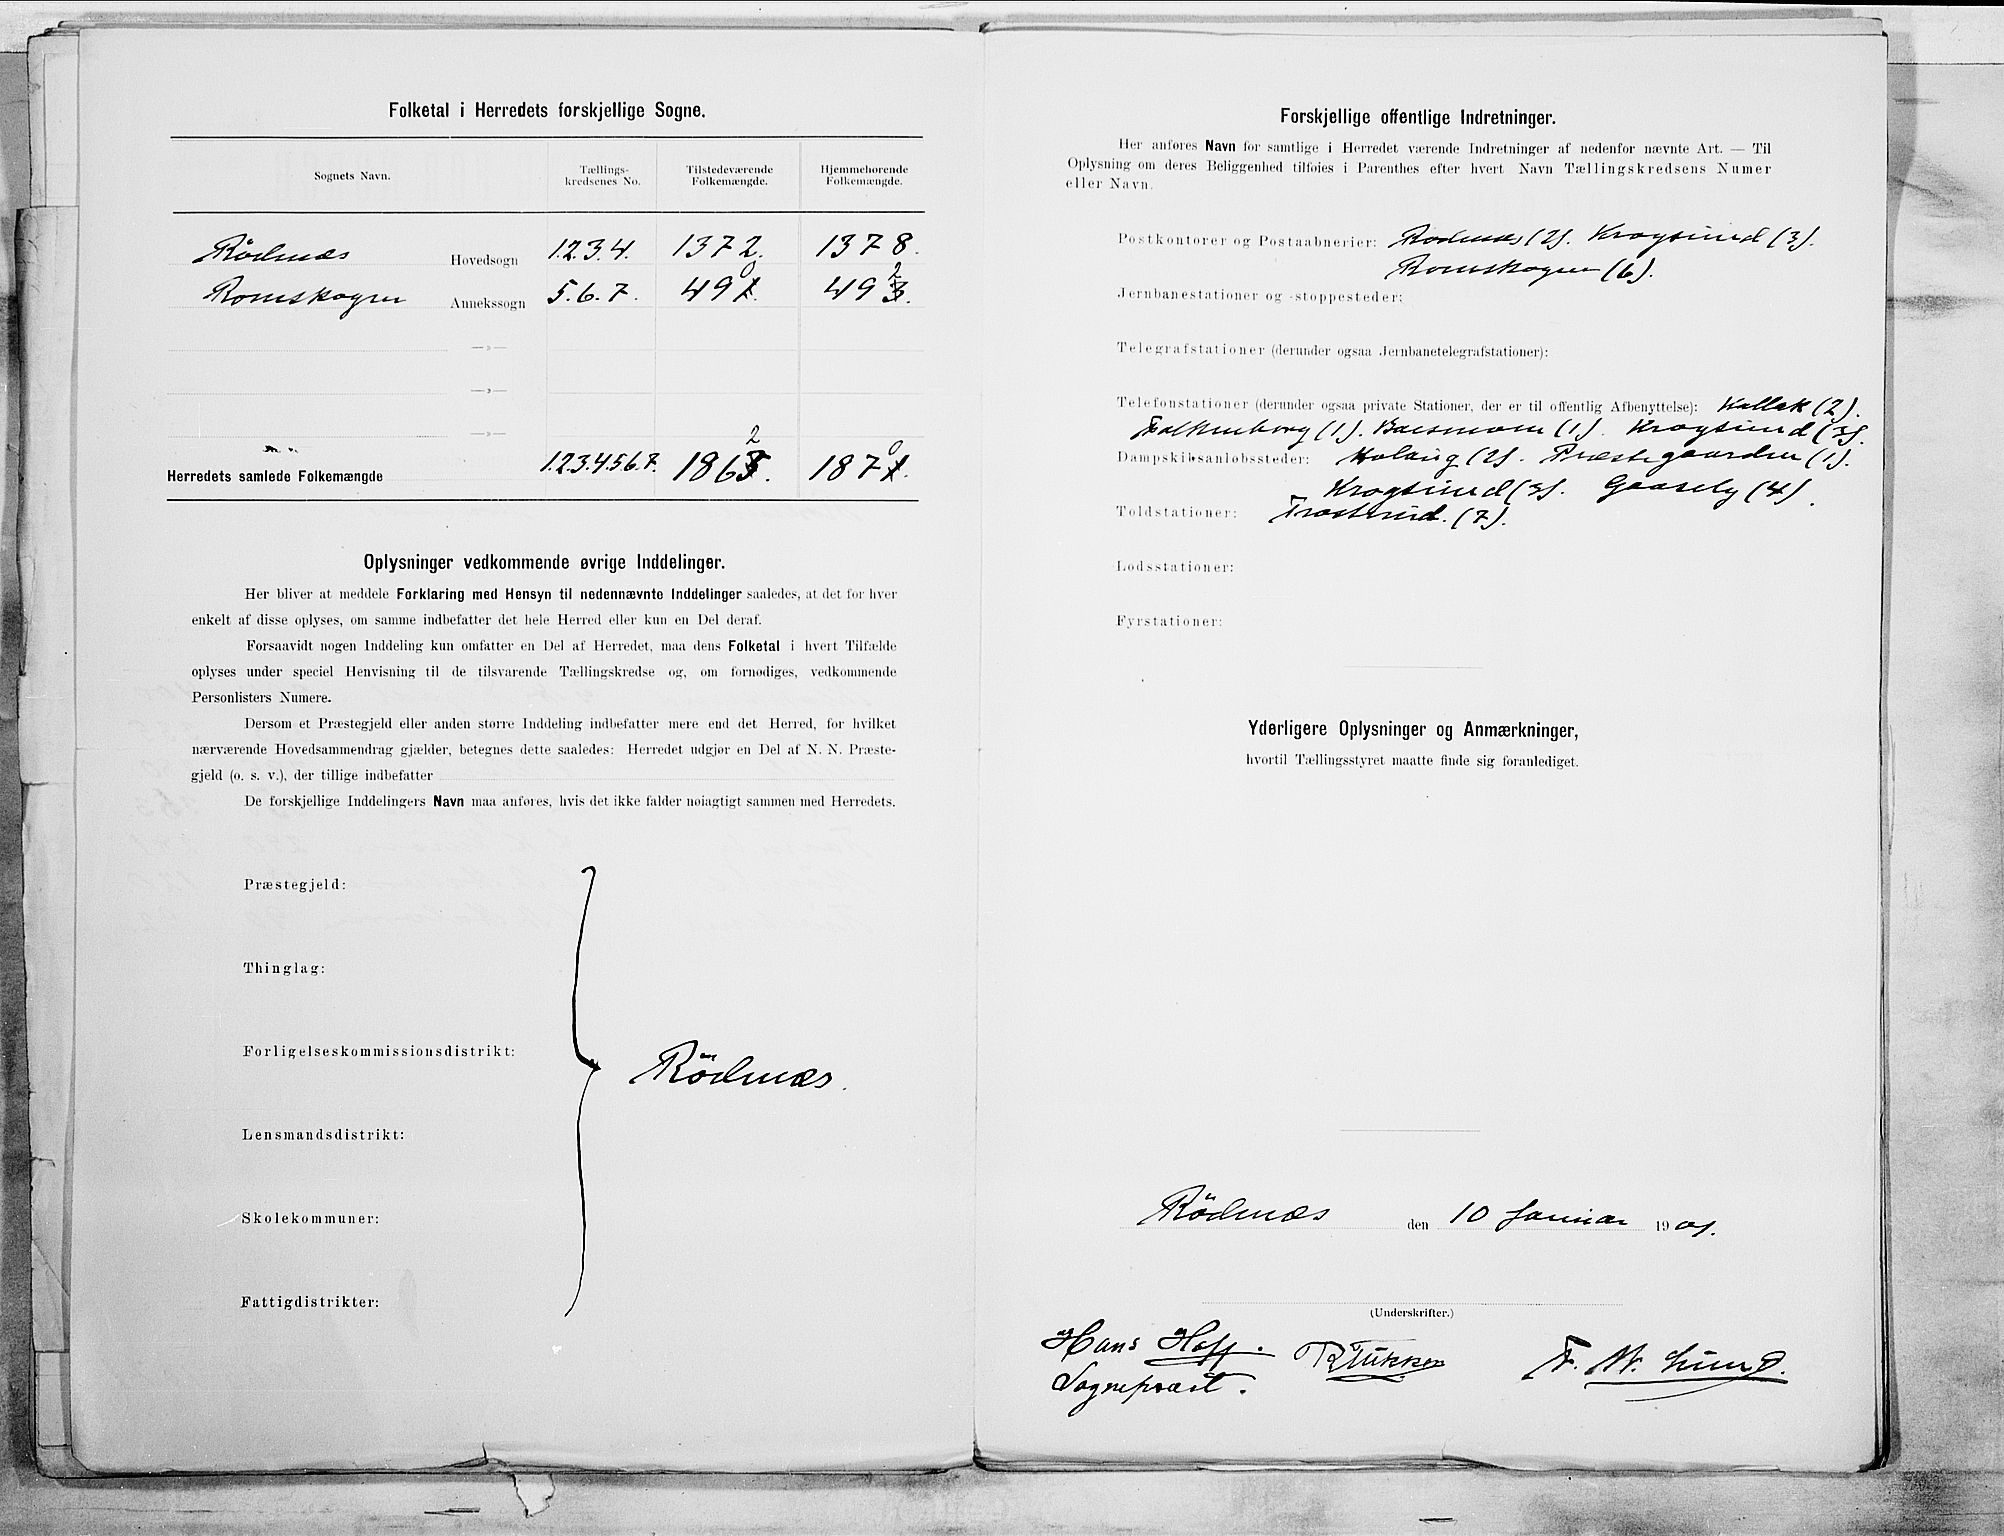 Folketal i Herredets forskjellige Sogne.
Sognets Navn.
Tællings-
kredsenes No.
Tilstedeværende
Folkemængde.
Hjemmehørende
Folkemængde.
Rödenæs Hovedsogn 1.2.3.4. 1372. 1378.
Romskogen Annekssogn 5.6.7. 490. 492.
—»—
—»—
—»—
Herredets samlede Folkemængde 1.2.3.4.5.6.7. 1862. 1870.
Oplysninger vedkommende øvrige Inddelinger.
Her bliver at meddele Forklaring med Hensyn til nedennævnte Inddelinger saaledes, at det for hver
enkelt af disse oplyses, om samme indbefatter det hele Herred eller kun en Del deraf.
Forsaavidt nogen Inddeling kun omfatter en Del af Herredet, maa dens Folketal i hvert Tilfælde
oplyses under speciel Henvisning til de tilsvarende Tællingskredse og, om fornødiges, vedkommende
Personlisters Numere.
Dersom et Præstegjeld eller anden større Inddeling indbefatter mere end det Herred, for hvilket
nærværende Hovedsammendrag gjælder, betegnes dette saaledes: Herredet udgjør en Del af N. N. Præste-
gjeld (o. s. v.), der tillige indbefatter
De forskjellige Inddelingers Navn maa anføres, hvis det ikke falder nøiagtigt sammen med Herredets.
Præstegjeld:
Thinglag:
Forligelseskommissionsdistrikt:
Rödenæs.
Lensmandsdistrikt:
Skolekommuner:
Fattigdistrikter:
Forskjellige offentlige Indretninger.
Her anføres Navn for samtlige i Herredet værende Indretninger af nedenfor nævnte Art. — Til
Oplysning om deres Beliggenhed tilføies i Parenthes efter hvert Navn Tællingskredsens Numer
eller Navn.
Postkontorer og Postaabnerier: Rodenæs (2). Krogsund (3).
Romskogen (6).
Jernbanestationer og -stoppesteder:
Telegrafstationer (derunder ogsaa Jernbanetelegrafstationer):
Telefonstationer (derunder ogsaa private Stationer, der er til offentlig Afbenyttelse): Kallak (2).
Falkenborg (1). Baasmoen (1). Krogsund (3).
Dampskibsanløbssteder: Kolaug (2). Præstegaarden (1).
Krogsund (3). Gaaseby (4).
Toldstationer: Trosterud. (7).
Lodsstationer:
Fyrstationer:
Yderligere Oplysninger og Anmærkninger,
hvortil Tællingsstyret maatte finde sig foranlediget.
Rödenæs den 10 Januar 1901.
(Underskrifter.)
Hans Hoff. F. W. Lund.
Sognepræst.